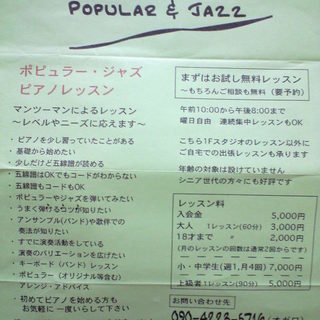 POPULAR & JAZZ
ポピュラー・ジャズ
ピアノレッスン
マンツーマンによるレッスン
〜レベルやニーズに応えます〜
・ピアノを少し習っていたことがある
・基礎から始めたい
・少しだけど五線譜が読める
・五線譜はOKでもコードがわからない
・五線譜もコードもOK
・ポピュラーやジャズを弾いてみたい
・うまく弾けるコツが知りたい
・アンサンブル(バンド)や歌伴での
奏法が知りたい
・すでに演奏活動をしている
・演奏のバリエーションを広げたい
・キーボード(バンド)レッスン
・ポピュラー(オリジナル等含む)
アレンジ・アドバイス
・初めてピアノを始める方も
お気軽に一度して下さい!
まずはお試し無料レッスン
〜もちろんご相談も無料(要予約)
午前10:00から午後8:00まで
曜日自由 連続集中レッスンもOK
こちら1Fスタジオのレッスン以外に
ご自宅での出張レッスンも承ります
年齢の対象は設けていません
シニア世代の方々にも好評です
レッスン料
入会金 5,000円
大人 1レッスン(60分) 3,000円
18才まで 〃 2,000円
(月のレッスンの回数は通常2回からです)
小・中学生(週1,月4回) 7,000円
上級者 1レッスン(90分) 5,000円
お問い合わせ先